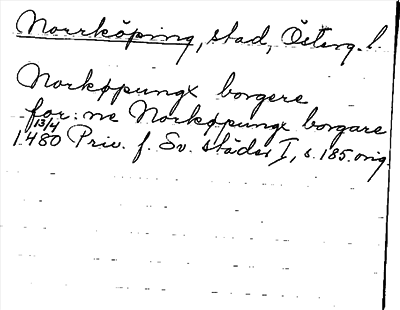 Norrköping, stad, Österg. l.
Norkøpungx borgere
for:ne Norkøpungx borgare
13/4
1480 Priv. f. Sv. städer I, s. 185. orig.